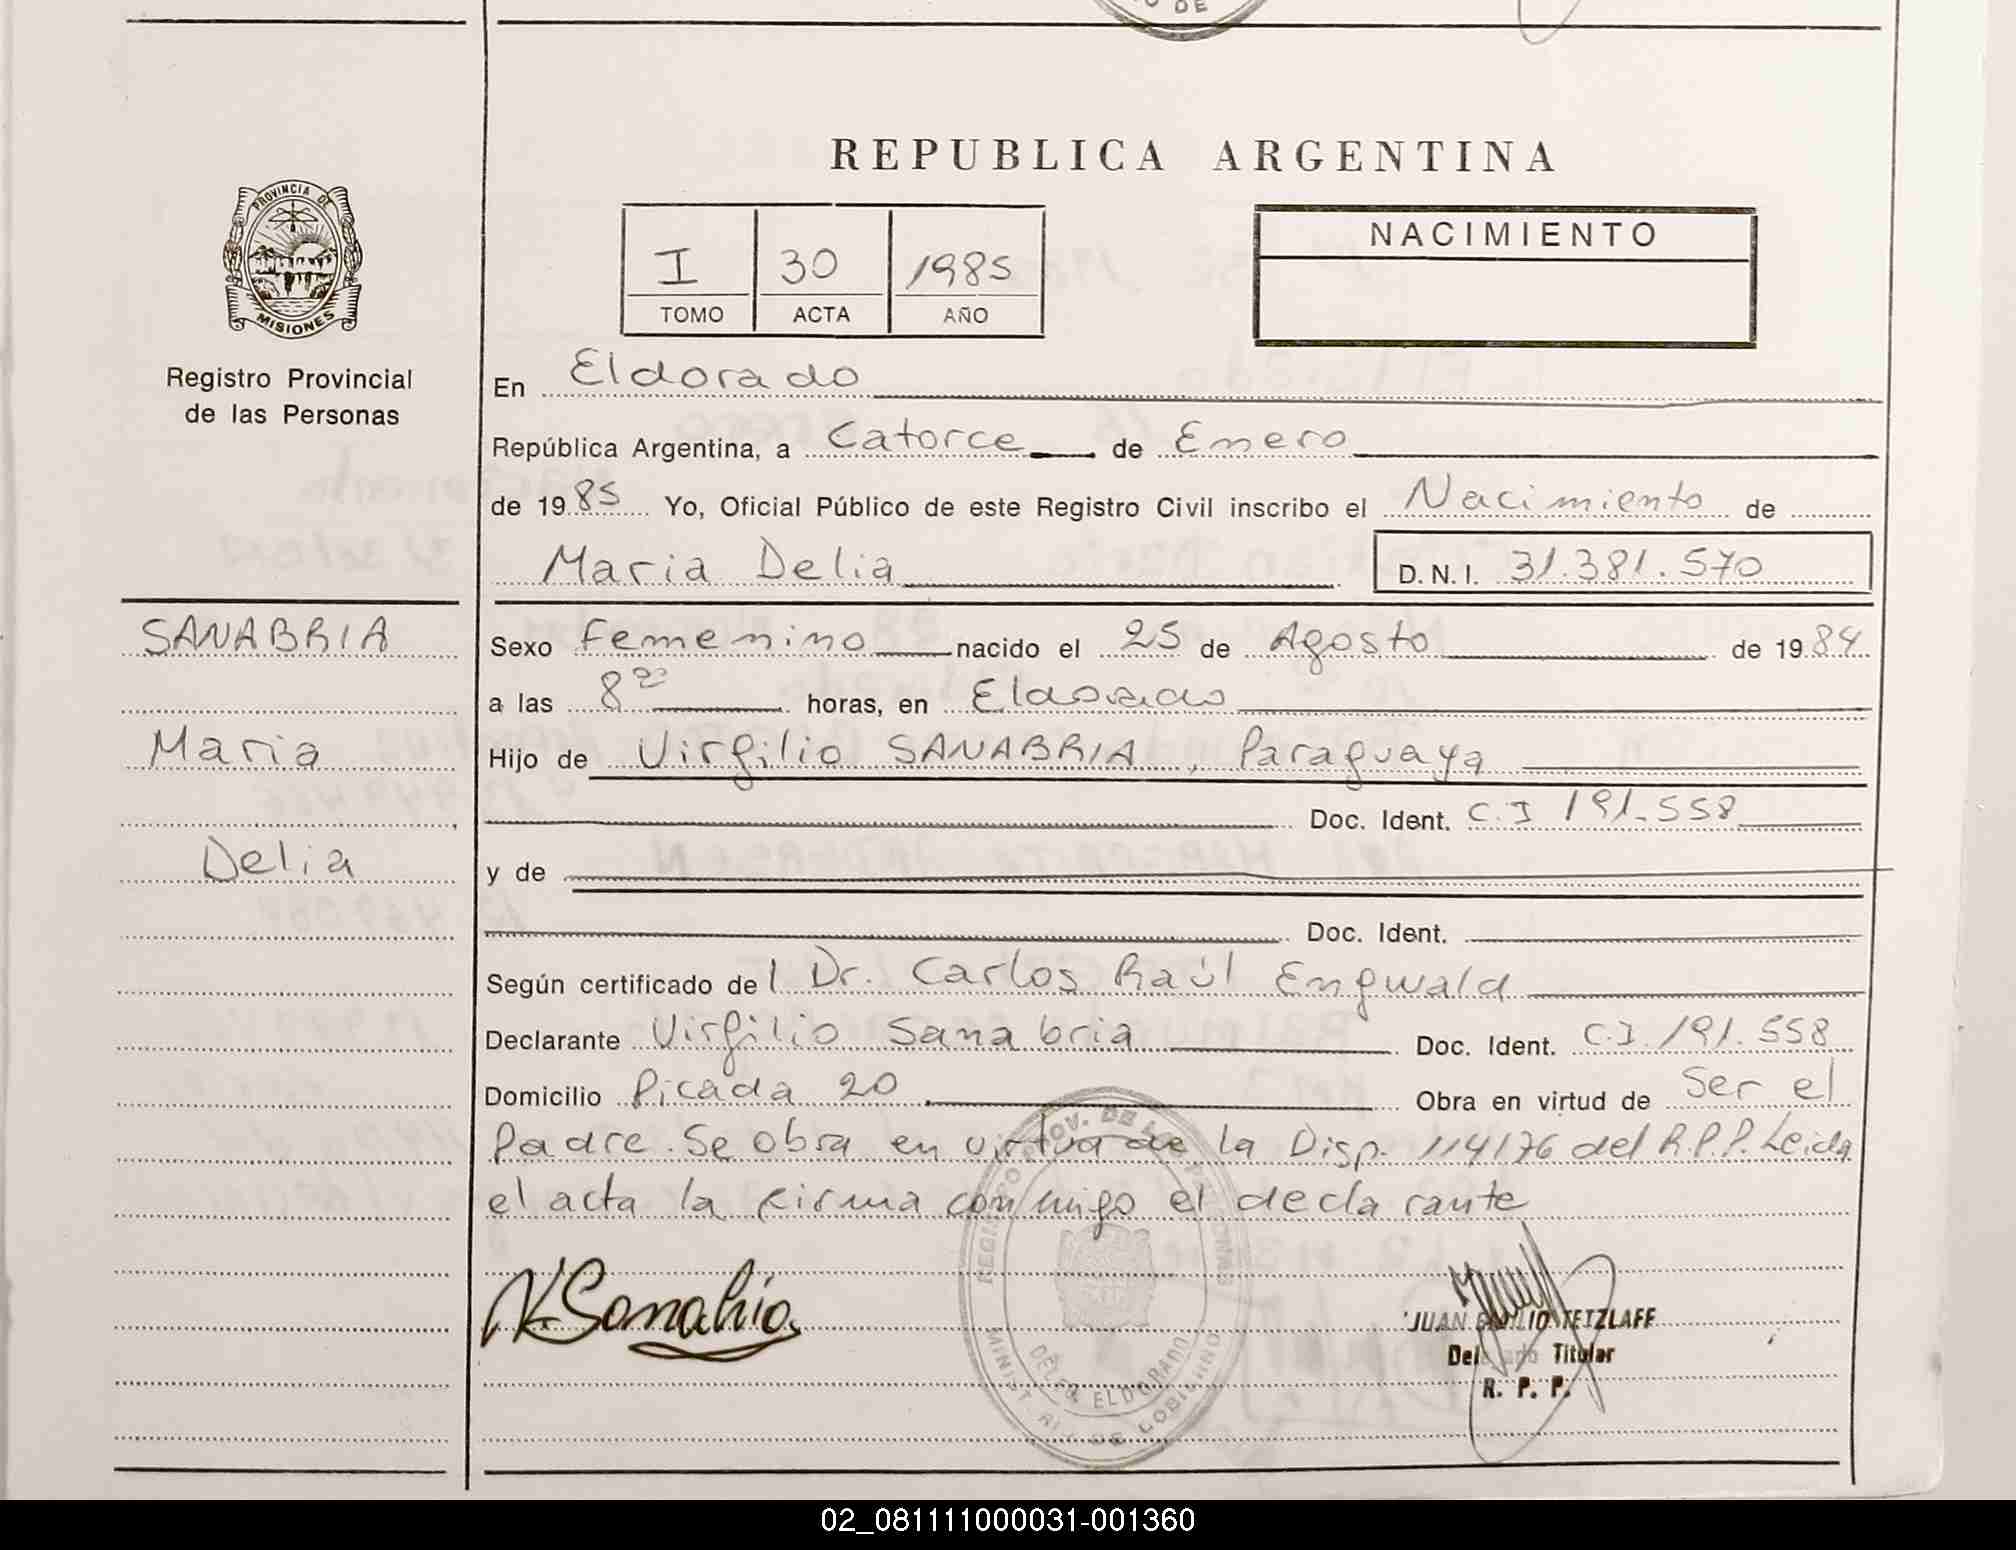 O DE
REPUBLICA ARGENTINA
PROVINCIA DE
MISIONES
Registro Provincial
de las Personas
I 30 1985
TOMO ACTA AÑO
NACIMIENTO
En Eldorado
República Argentina, a Catorce de Enero
de 1985 Yo, Oficial Público de este Registro Civil inscribo el Nacimiento de
Maria Delia D.N.I. 31.381.570
SANABRIA
Maria
Delia
Sexo Femenino nacido el 25 de Agosto de 1984
a las 8 horas, en Eldorado
Hijo de Virgilio SANABRIA, Paraguaya
Doc. Ident. C.I 191.558
y de
Doc. Ident.
Según certificado del Dr. Carlos Raúl Engwald
Declarante Virgilio Sanabria Doc. Ident. C.I. 191.558
Domicilio Picada 20 Obra en virtud de Ser el
Padre. Se obra en virtud de la Disp. 114/76 del R.P.P. Leida
el acta la firma conmigo el declarante
REGISTRO PROV. DE LAS PERSONAS
DELEG. ELDORADO
MINISTERIO DE GOBIERNO
JUAN EMILIO TETZLAFF
Delegado Titular
R. P. P.
02_081111000031-001360